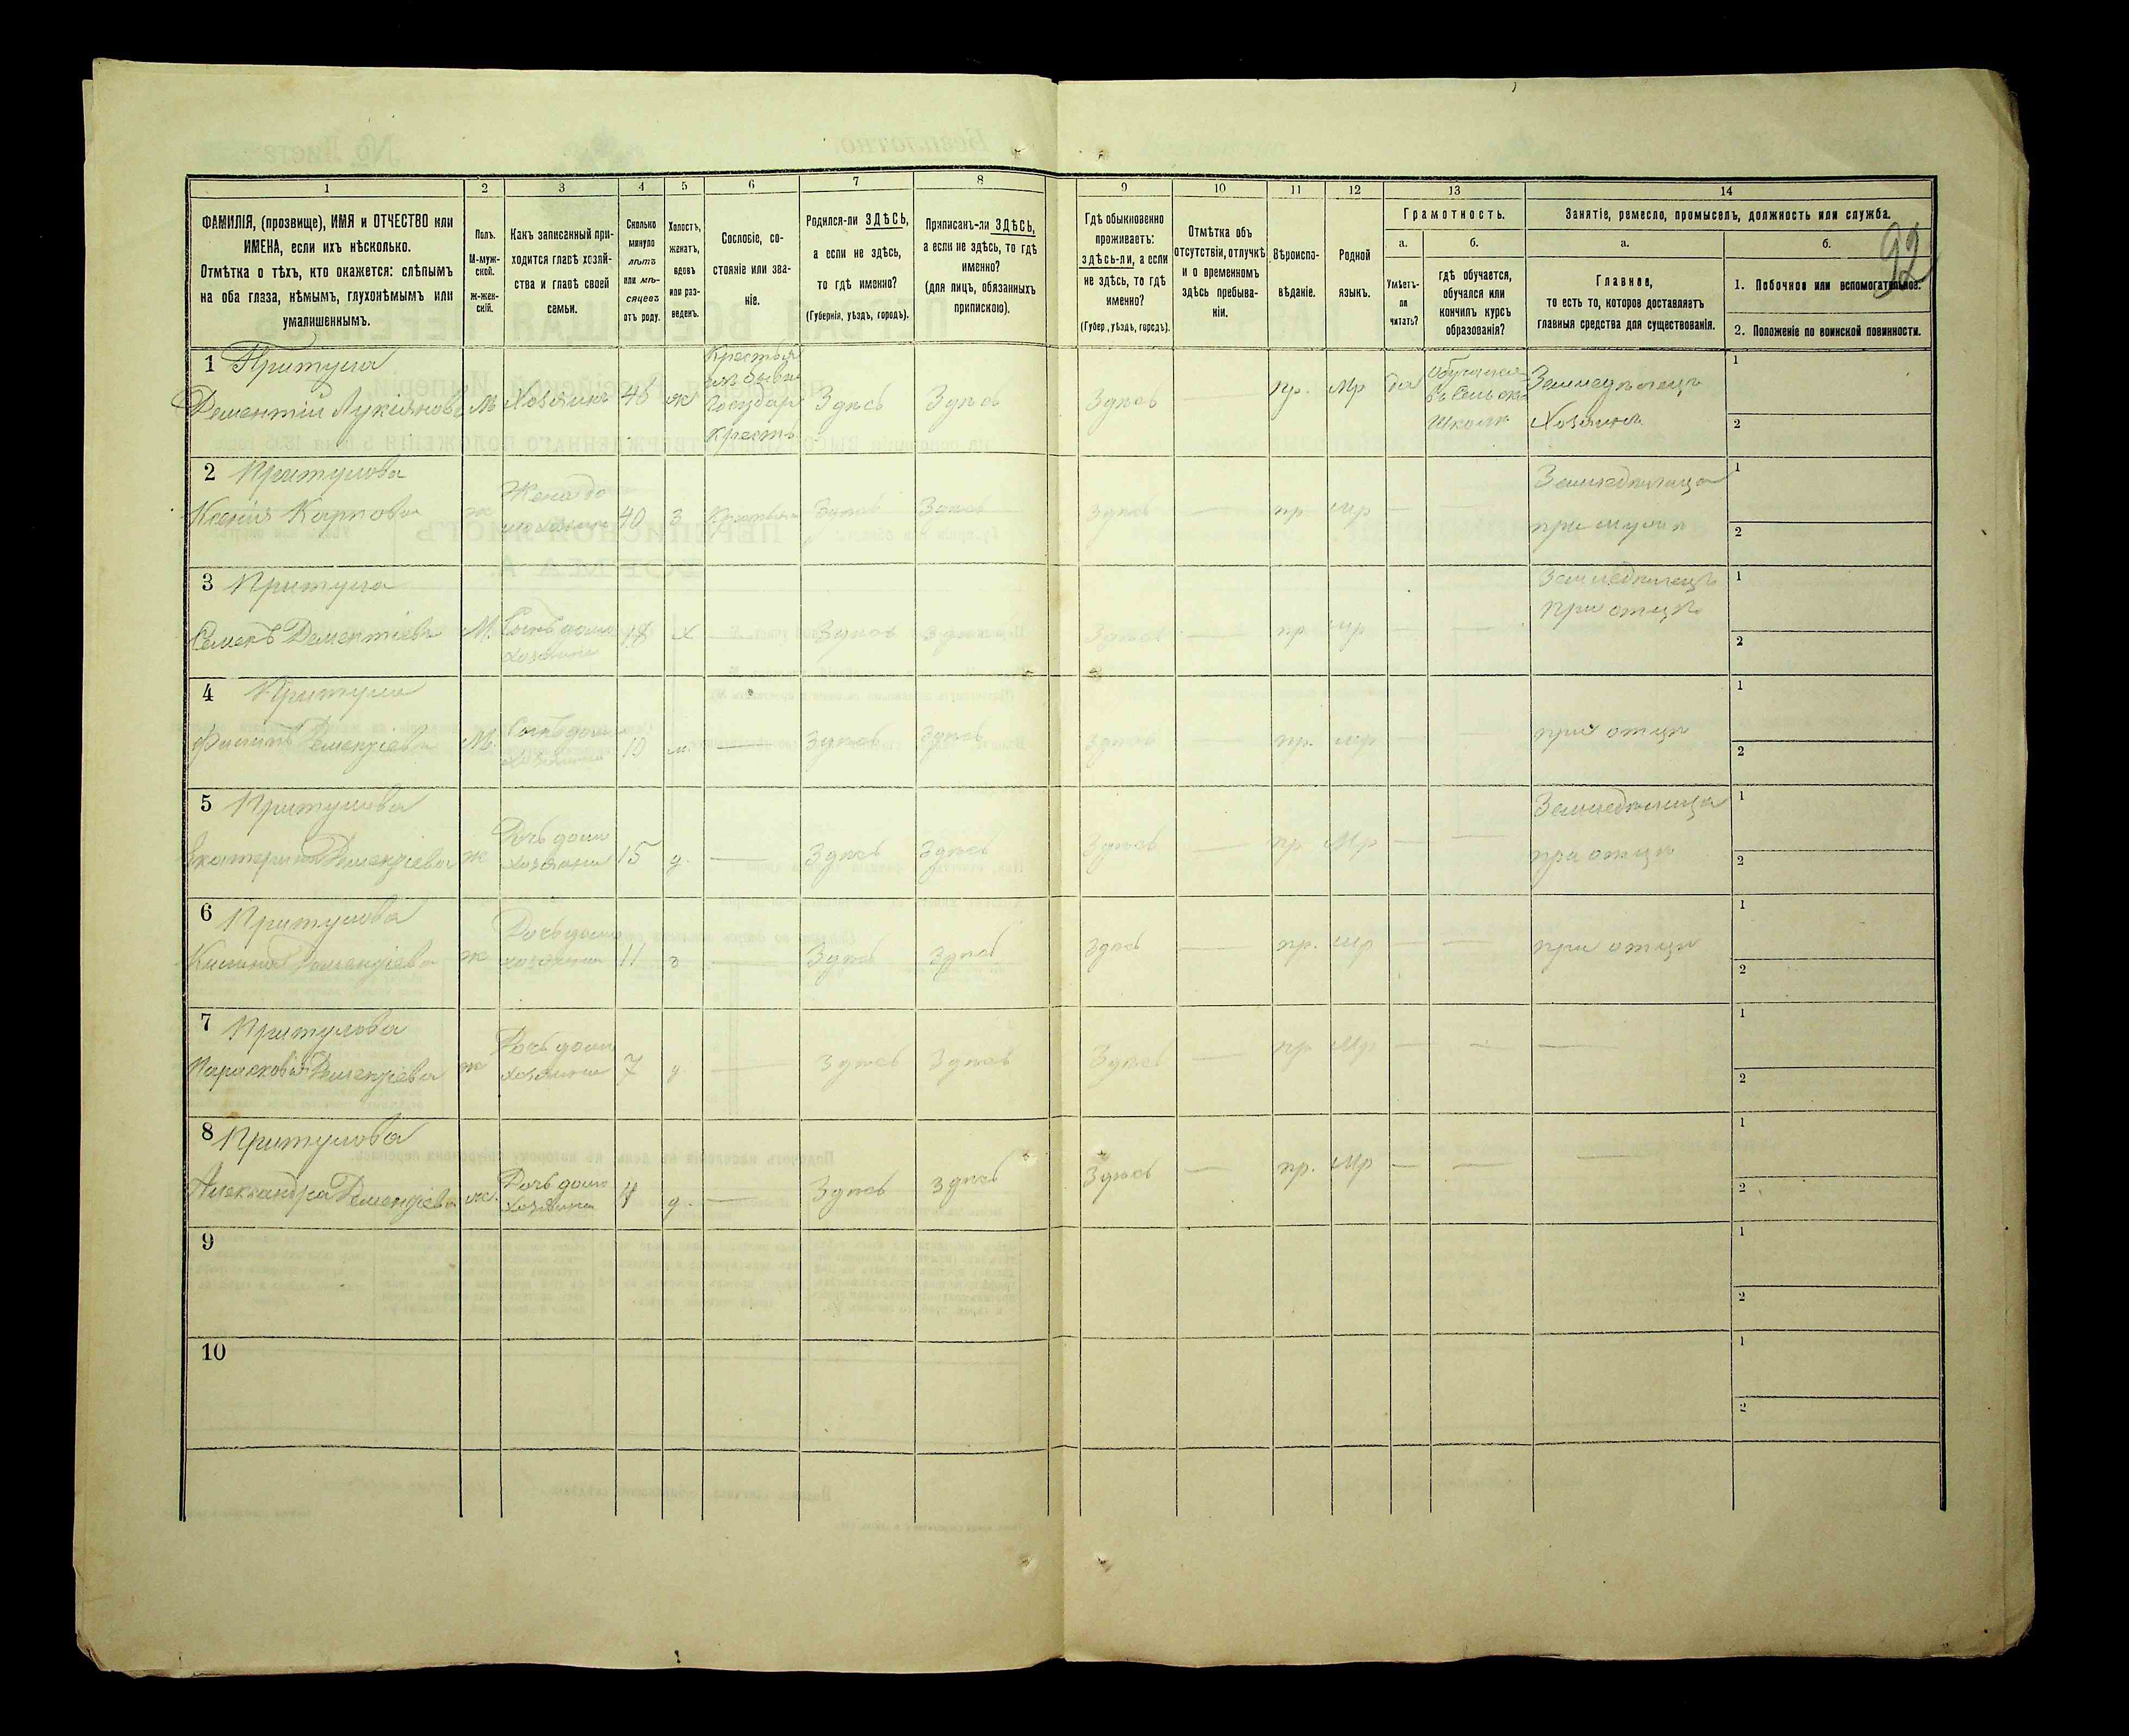 92
1 2 3 4 5 6 7 8 9 10 11 12 13 14
ФАМИЛІЯ, (прозвище), ИМЯ и ОТЧЕСТВО или
ИМЕНА, если ихъ нѣсколько.
Отмѣтка о тѣхъ, кто окажется: слѣпымъ
на оба глаза, нѣмымъ, глухонѣмымъ или
умалишеннымъ.
Полъ.
М-муж-
ской.
ж-жен-
скій.
Какъ записанный при-
ходится главѣ хозяй-
ства и главѣ своей
семьи.
Сколько
минуло
лѣтъ
или мѣ-
сяцевъ
отъ роду.
Холостъ,
женатъ,
вдовъ
или раз-
веденъ.
Сословіе, со-
стояніе или зва-
ніе.
Родился-ли ЗДѢСЬ,
а если не здѣсь,
то гдѣ именно?
(Губернія, уѣздъ, городъ).
Приписанъ-ли ЗДѢСЬ,
а если не здѣсь, то гдѣ
именно?
(для лицъ, обязанныхъ
припискою).
Гдѣ обыкновенно
проживаетъ:
здѣсь-ли, а если
не здѣсь, то гдѣ
именно?
(Губер., уѣздъ, городъ).
Отмѣтка объ
отсутствіи, отлучкѣ
и о временномъ
здѣсь пребыва-
ніи.
Вѣроиспо-
вѣданіе.
Родной
языкъ.
Грамотность.
а.
Умѣетъ-
ли
читать?
б.
гдѣ обучается,
обучался или
кончилъ курсъ
образованія?
Занятіе, ремесло, промыселъ, должность или служба.
а.
Главное,
то есть то, которое доставляетъ
главныя средства для существованія.
б.
1. Побочное или вспомогательное.
2. Положеніе по воинской повинности.
1 Притула
Дементій Лукіяновъ М Хозяинъ 46 ж
Государ
Крестъ
Здѣсь Здѣсь Здѣсь — пр. Мр да
Обучался
въ Сельско
Школѣ
Земледѣлецъ
Хозяинъ
1
2
2 Притулова
Ксенія Карпова ж
Жена до
40 З Здѣсь Здѣсь Здѣсь — пр Мр — —
Земледѣлица
при мужѣ
1
2
3 Притула
Семенъ Дементіевъ М. Сынъ домо
хозяина
18 х — Здѣсь Здѣсь Здѣсь — пр Мр — —
Земледѣлецъ
при отцѣ
1
2
4 Притула
Филипъ Дементіевъ М. Сынъ домо
хозяина
10 — Здѣсь Здѣсь Здѣсь — пр. Мр — —
при отцѣ
1
2
5 Притулова
Екатерина Дементіева ж Дочь домо
хозяина
15 д. — Здѣсь Здѣсь Здѣсь — пр Мр — —
Земледѣлица
при отцѣ
1
2
6 Притулова
Дементіева ж Дочь домо
хозяина
11 — Здѣсь Здѣсь Здѣсь — пр. Мр — —
при отцѣ
1
2
7 Притулова
Парасковія Дементіева ж Дочь домо
хозяина
7 д. — Здѣсь Здѣсь Здѣсь — пр Мр — — —
1
2
8 Притулова
Александра Дементіева ж. Дочь домо
хозяина
4 д. — Здѣсь Здѣсь Здѣсь — пр. Мр — — —
1
2
9
1
2
10
1
2